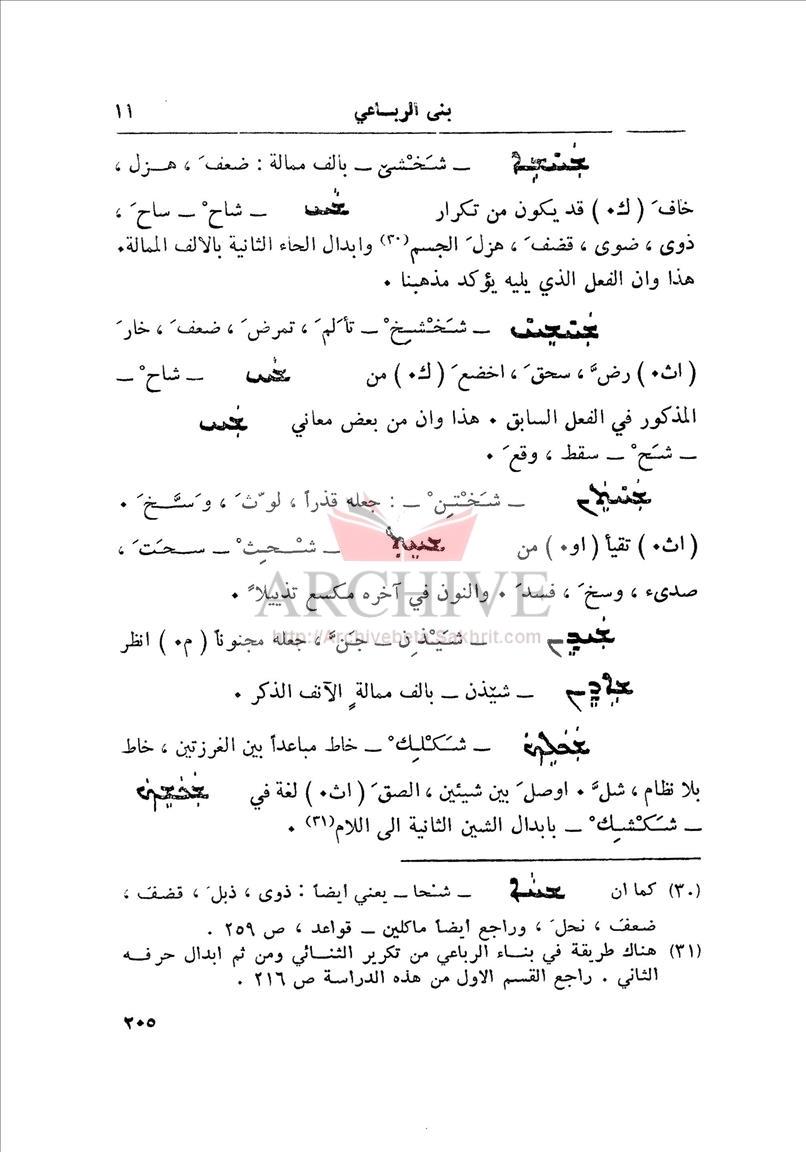 بنى الرباعي ١١
ـ شَخْشيْ ـ بالف ممالة : ضعفَ ، هزل ،
خافَ ( ك٠ ) قد يكون من تكرار ـ شاحْ ـ ساحَ ،
ذوى ، ضوى ، قضفَ ، هزلَ الجسم(٣٠) وابدال الحاء الثانية بالالف الممالة٠
هذا وان الفعل الذي يليه يؤكد مذهبنا ٠
ـ شَخْشِخْ ـ تألمَ ، تمرضَ ، ضعفَ ، خارَ
( اث٠ ) رضَّ ، سحقَ ، اخضعَ ( ك٠ ) من ـ شاحْ ـ
المذكور في الفعل السابق ٠ هذا وان من بعض معاني
ـ شَحْ ـ سقط ، وقعَ ٠
ـ شَخْتِنْ ـ : جعله قذراً ، لوّثَ ، وَسَّخَ ٠
( اث٠ ) تقيأ ( او٠ ) من ـ شْحِثْ ـ سحتَ ،
صدىء ، وسخَ ، فسدَ ٠ والنون في آخره مكسع تذييلاً ٠
ARCHIVE
http://Archivebeta.Sakhrit.com
ـ شَيْذِن ـ جَنَّ ، جعله مجنوناً ( م٠ ) انظر
ـ شيّذن ـ بالف ممالةٍ الآنف الذكر ٠
ـ شَكْلِكْ ـ خاط مباعداً بين الغرزتين ، خاط
بلا نظام ، شلَّ ٠ اوصلَ بين شيئين ، الصقَ ( اث٠ ) لغة في
ـ شَكْشِكْ ـ بابدال الشين الثانية الى اللام(٣١) ٠
(٣٠) كما ان ـ شنْحا ـ يعني ايضاً : ذوى ، ذبلَ ، قضفَ ،
ضعفَ ، نحلَ ، وراجع ايضاً ماكلين ـ قواعد ، ص ٢٥٩ .
(٣١) هناك طريقة في بناء الرباعي من تكرير الثنائي ومن ثم ابدال حرفه
الثاني . راجع القسم الاول من هذه الدراسة ص ٢١٦ .
٢٠٥